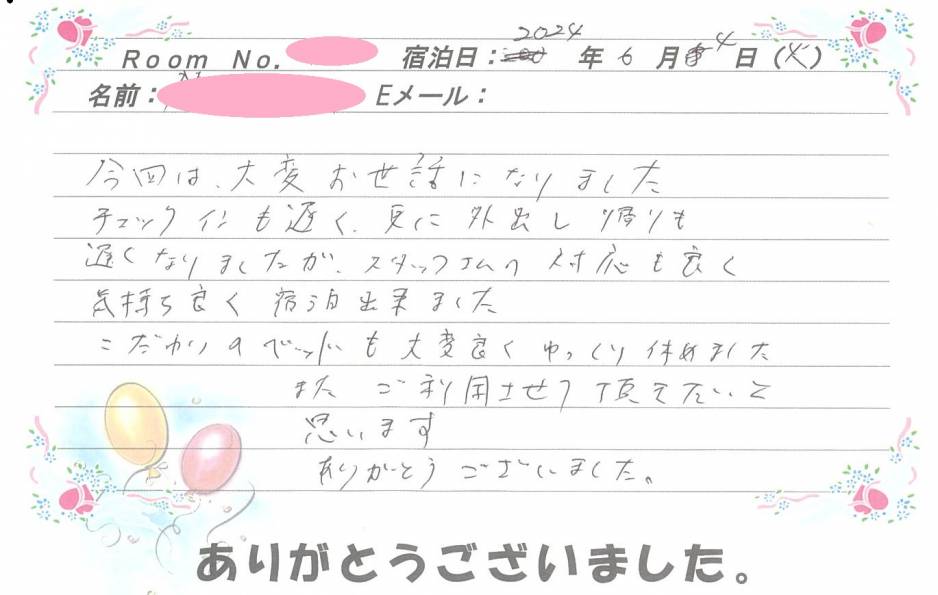 Room No. 宿泊日：2024年6月4日（火）
名前： Eメール：
今回は、大変お世話になりました
チェックインも遅く、更に外出し帰りも
遅くなりましたが、スタッフさんの対応も良く
気持ち良く宿泊出来ました
こだわりのベッドも大変良くゆっくり休めました
また ご利用させて頂きたいと
思います
ありがとうございました。
ありがとうございました。